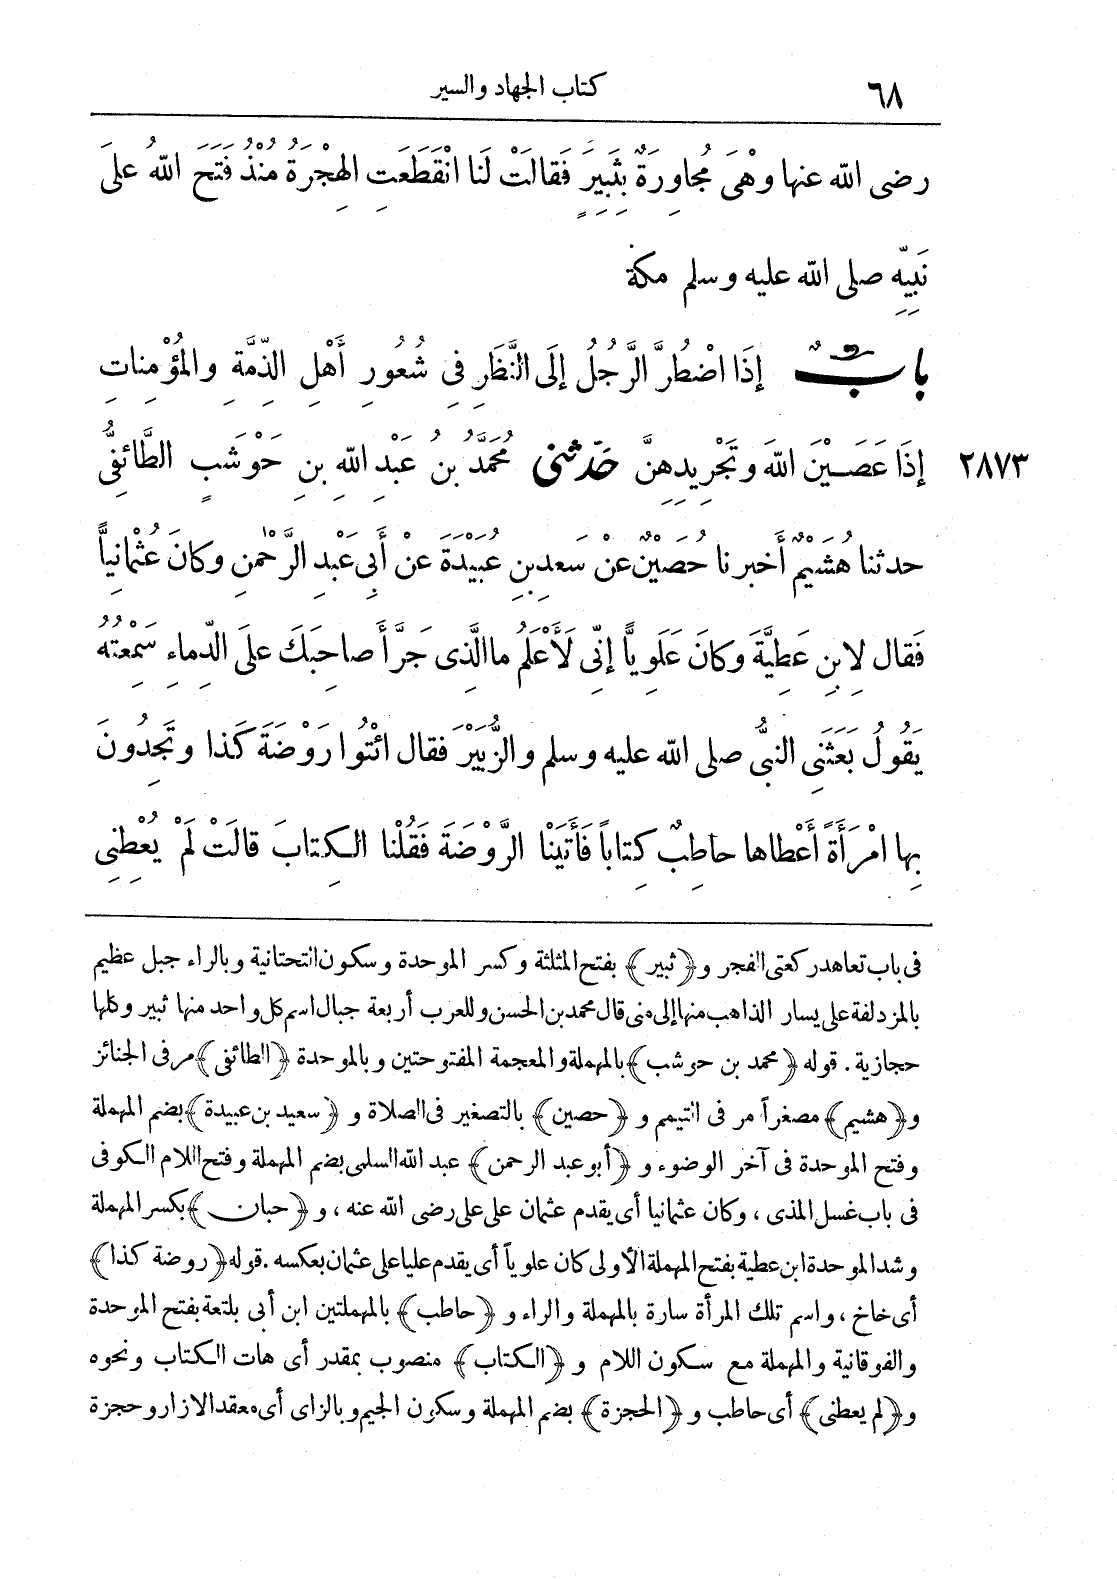 ٦٨ كتاب الجهاد والسير
رضى الله عنها وهْىَ مُجاوِرَةٌ بِثَبِيرَ فَقالَتْ لَنا انْقَطَعَتِ الهِجْرَةُ مُنْذُ فَتَحَ اللهُ علَى
نَبِيِّهِ صلى الله عليه وسلم مكة
بابٌ إِذَا اضْطُرَّ الرَّجُلُ إِلَى النَّظَرِ فِى شُعُورِ أَهْلِ الذِّمَّةِ والمُؤْمِناتِ
٢٨٧٣ إِذَا عَصَيْنَ اللهَ وتَجْرِيدِهِنَّ حَدّثنى مُحَمَّدُ بنُ عَبْدِ اللهِ بنِ حَوْشَبٍ الطَّائِفِىُّ
حدثنا هُشَيْمٌ أَخبرنا حُصَيْنٌ عنْ سَعدِ بنِ عُبَيْدَةَ عنْ أَبِى عَبْدِ الرَّحْمٰنِ وكانَ عُثْمانِيًّا
فَقال لِابنِ عَطِيَّةَ وكانَ عَلَوِيًّا إِنِّى لَأَعْلَمُ ما الَّذِى جَرَّأَ صاحِبَكَ علَى الدِّماءِ سَمِعْتُهُ
يَقُولُ بَعَثَنِى النبىُّ صلى الله عليه وسلم والزُّبَيْرَ فقال ائْتُوا رَوْضَةَ كَذا وتَجِدُونَ
بِها امْرَأَةً أَعْطاها حاطِبٌ كِتاباً فَأَتَيْنَا الرَّوْضَةَ فَقُلْنا الكِتابَ قالَتْ لَمْ يُعْطِنِى
فى باب تعاهد ركعتى الفجر و﴿ثبير﴾ بفتح المثلثة وكسر الموحدة وسكون التحتانية وبالراء جبل عظيم
بالمزدلفة على يسار الذاهب منها إلى منى قال محمد بن الحسن وللعرب أربعة جبال اسم كل واحد منها ثبير وكلها
حجازية. قوله ﴿محمد بن حوشب﴾ بالمهملة والمعجمة المفتوحتين وبالموحدة ﴿الطائفى﴾ مر فى الجنائز
و﴿هشيم﴾ مصغراً مر فى التيمم و﴿حصين﴾ بالتصغير فى الصلاة و﴿سعيد بن عبيدة﴾ بضم المهملة
وفتح الموحدة فى آخر الوضوء و﴿أبو عبد الرحمن﴾ عبد الله السلمى بضم المهملة وفتح اللام الكوفى
فى باب غسل المذى، وكان عثمانيا أى يقدم عثمان على على رضى الله عنه، و﴿حبان﴾ بكسر المهملة
وشد الموحدة ابن عطية بفتح المهملة الأولى كان علوياً أى يقدم عليا على عثمان بعكسه. قوله ﴿روضة كذا﴾
أى خاخ، واسم تلك المرأة سارة بالمهملة والراء و﴿حاطب﴾ بالمهملتين ابن أبى بلتعة بفتح الموحدة
والفوقانية والمهملة مع سكون اللام و﴿الكتاب﴾ منصوب بمقدر أى هات الكتاب ونحوه
و﴿لم يعطنى﴾ أى حاطب و﴿الحجزة﴾ بضم المهملة وسكون الجيم وبالزاى أى معقد الازار وحجزة